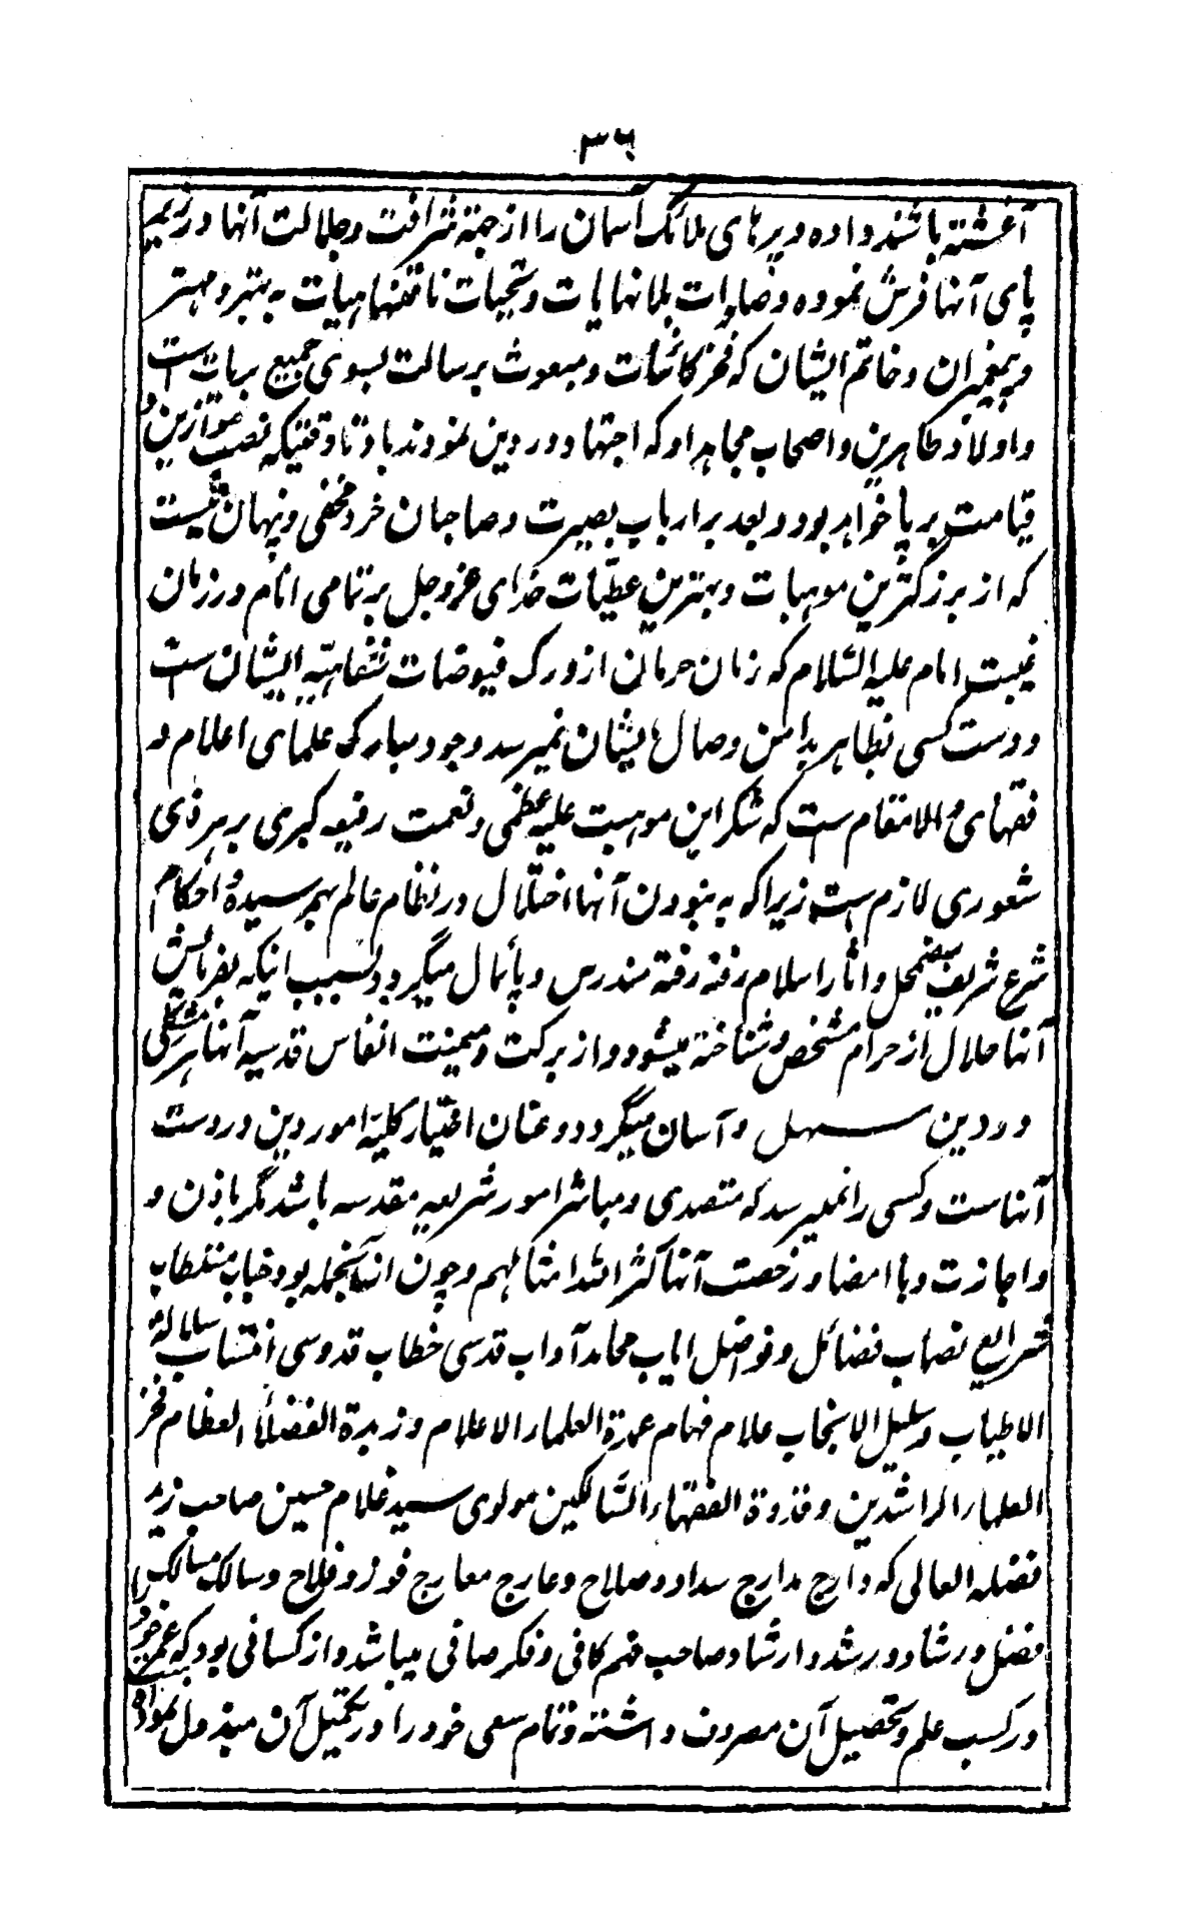 ۳۶
آغشته باشند داده و پرهای ملائک آسمان را از جهة شرافت و جلالت آنها در زیر
پای آنها فرش نموده و صلوات بلا نهایات و تحیات نا متناهیات به بهتر و مهتر
پیغمبران و خاتم ایشان که فخر کائنات و مبعوث برسالت بسوی جمیع بریات است
و اولاد طاهرین و اصحاب مجاهد او که اجتهاد در دین نمودند باد تا وقتیکه نصب موازین در
قیامت برپا خواهد بود و بعد بر ارباب بصیرت و صاحبان خرد مخفی و پنهان نیست
که از بزرگترین موهبات و بهترین عطیّات خدای عزوجل بر تمامی انام در زمان
غیبت امام علیه السّلام که زمان حرمان از درک فیوضات شفاهیّه ایشان است
و دست کسی بظاهر بدامن وصال ایشان نمیرسد وجود مبارک علمای اعلام و
فقهای والامقام ست که شکر این موهبت علیه عظمی و نعمت رفیعه کبری بر هر ذی
شعوری لازم ست زیرا که به نبودن آنها اختلال در نظام عالم بهم رسیده و احکام
شرع شریف مضمحل و اثار اسلام رفته رفته مندرس و پائمال میگردد بسبب اینکه بفرمایش
آنها حلال از حرام مشخص و شناخته میشود و از برکت و میمنت انفاس قدسیه آنها هر مشکلی
در دین سهل و آسان میگردد و عنان اختیار کلیّه امور دین در دست
آنهاست و کسی را نمیرسد که متصدی و مباشر امور شریعه مقدسه باشد مگر باذن و
و اجازت و با امضا و رخصت آنها کثر الله امثالهم و چون از آنجمله بود جناب مستطاب
شرایع نصاب فضائل و فواضل ایاب محامد آداب قدسی خطاب قدوسی انتساب سلاله
الاطیاب و سلیل الانجاب علام فهام عمدة العلماء الاعلام و زبدة الفضلاء العظام فخر
العلماء الراشدین و قدوة الفقهاء السّالکین مولوی سید غلام حسین صاحب زید
فضله العالی که دارج مدارج سداد و صلاح و عارج معارج فوز و فلاح و سالک مسالک
فضل و رشاد و رشد و ارشاد صاحب فهم کافی و فکر صافی میباشد و از کسانی بود که عمر خود را
در کسب علم و تحصیل آن مصروف داشته و تمام سعی خود را در تکمیل آن مبذول نموده